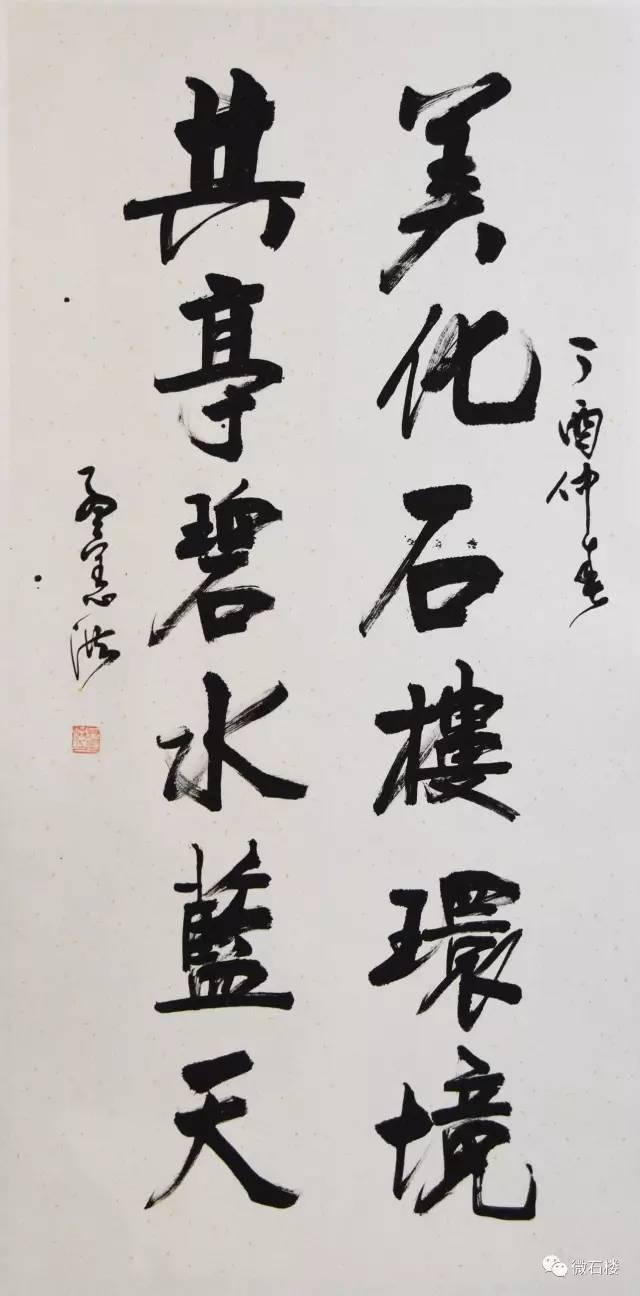 丁酉仲春
美化石樓環境
共享碧水藍天
微石楼